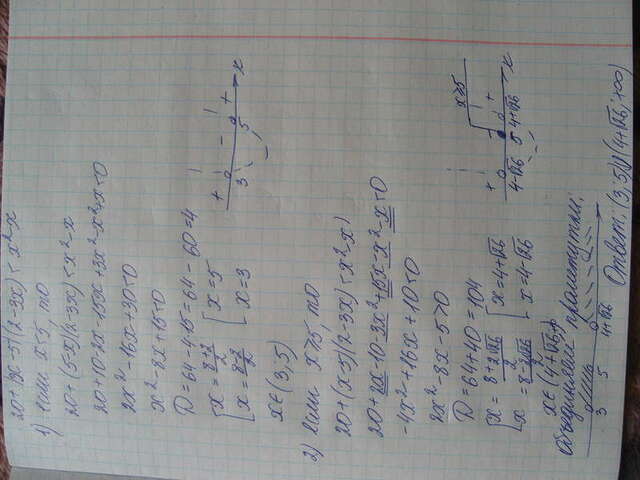 20+|x-5|(2-3x)<x²-x
1) Если x<5, то
20+(5-x)(2-3x)<x²-x
20+10-2x-15x+3x²-x²+x<0
2x²-16x+30<0
x²-8x+15<0
D=64-4·15=64-60=4
x=(8+2)/2
x=(8-2)/2
x=5
x=3
+ - +
3 5 x
x∈(3,5)
2) Если x≥5, то
20+(x-5)(2-3x)<x²-x
20+2x-10-3x²+15x-x²+x<0
-4x²+18x+10<0
2x²-8x-5>0
D=64+40=104
x=(8+2√26)/2
x=(8-2√26)/2
x=4+√26
x=4-√26
x≥5
+ - +
4-√26 5 4+√26 x
Объединяем промежутки:
3 5 4+√26
Ответ: (3,5)∪(4+√26;+∞)